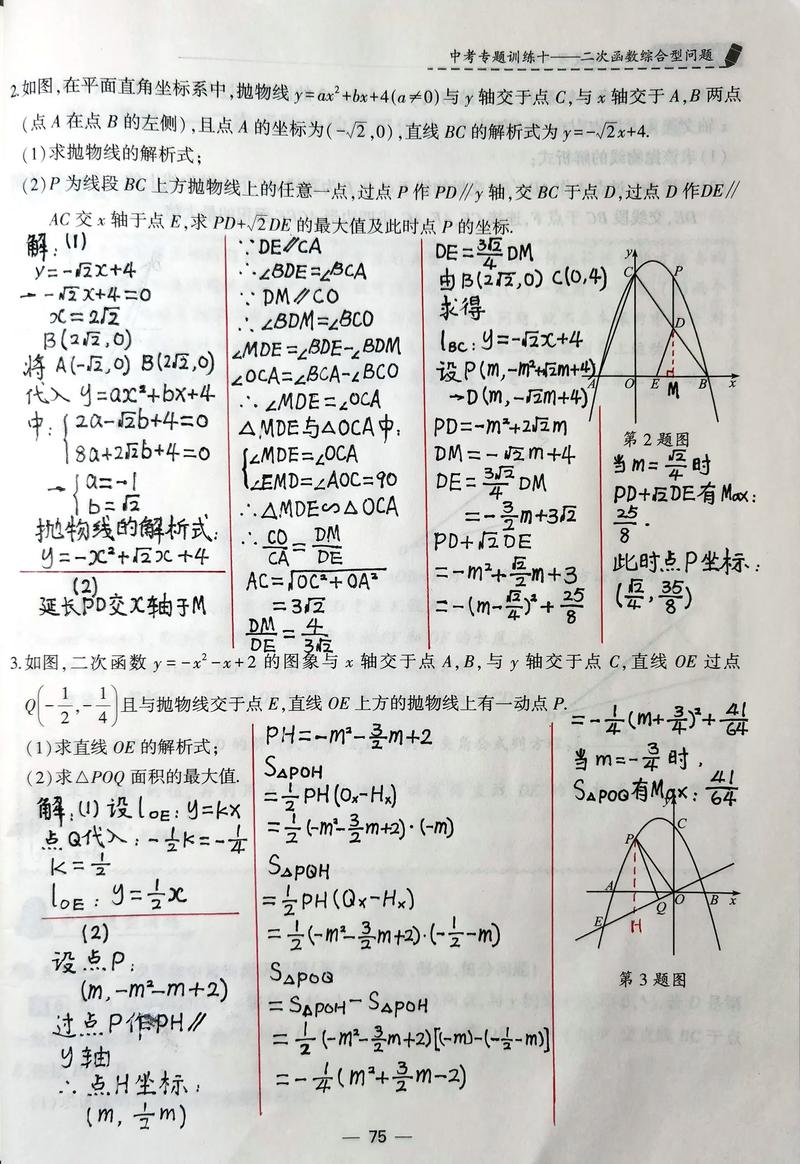 中考专题训练十——二次函数综合型问题
2.如图,在平面直角坐标系中,抛物线 y=ax²+bx+4(a≠0)与 y 轴交于点 C,与 x 轴交于 A,B 两点
(点 A 在点 B 的左侧),且点 A 的坐标为(-√2,0),直线 BC 的解析式为 y=-√2x+4.
(1)求抛物线的解析式;
(2)P 为线段 BC 上方抛物线上的任意一点,过点 P 作 PD∥y 轴,交 BC 于点 D,过点 D 作DE∥
AC 交 x 轴于点 E,求 PD+√2DE 的最大值及此时点 P 的坐标.
解:(1)
y=-√2x+4
→ -√2x+4=0
x=2√2
B(2√2,0)
将 A(-√2,0) B(2√2,0)
代入 y=ax²+bx+4
中: { 2a-√2b+4=0
8a+2√2b+4=0
→ { a=-1
b=√2
抛物线的解析式:
y=-x²+√2x+4
(2)
延长PD交X轴于M
∵DE∥CA
∴∠BDE=∠BCA
∵ DM∥CO
∴ ∠BDM=∠BCO
∠MDE=∠BDE-∠BDM
∠OCA=∠BCA-∠BCO
∴ ∠MDE=∠OCA
△MDE与△OCA中:
{ ∠MDE=∠OCA
∠EMD=∠AOC=90
∴△MDE∽△OCA
∴ CO/CA = DM/DE
AC=√OC²+OA²
=3√2
DM/DE = 4/3√2
DE=3√2/4 DM
由B(2√2,0) C(0,4)
求得
lBC: y=-√2x+4
设P(m,-m²+√2m+4)
→D(m,-√2m+4)
PD=-m²+2√2m
DM=-√2m+4
DE=3√2/4 DM
=-3/2m+3√2
PD+√2DE
=-m²+√2/2m+3
=-(m-√2/4)²+25/8
y
C
P
D
A
O
E
M
B
x
第 2 题图
当m=√2/4时
PD+√2DE有Max:
25/8.
此时点P坐标:
(√2/4,35/8)
3.如图,二次函数 y=-x²-x+2 的图象与 x 轴交于点 A,B,与 y 轴交于点 C,直线 OE 过点
Q(-1/2,-1/4)且与抛物线交于点 E,直线 OE 上方的抛物线上有一动点 P.
(1)求直线 OE 的解析式;
(2)求△POQ 面积的最大值.
解:(1)设lOE:y=kx
点Q代入:-1/2k=-1/4
k=1/2
lOE: y=1/2x
(2)
设点P:
(m,-m²-m+2)
过点P作PH∥
y轴
∴点H坐标:
(m,1/2m)
PH=-m²-3/2m+2
S△POH
=1/2PH(Ox-Hx)
=1/2(-m²-3/2m+2)·(-m)
S△PQH
=1/2PH(Qx-Hx)
=1/2(-m²-3/2m+2)·(-1/2-m)
S△POQ
=S△POH-S△PQH
=1/2(-m²-3/2m+2)[(-m)-(-1/2-m)]
=-1/4(m²+3/2m-2)
=-1/4(m+3/4)²+41/64
当m=-3/4时,
S△POQ有Max:41/64
y
C
P
A
O
B
x
Q
E
H
第 3 题图
— 75 —